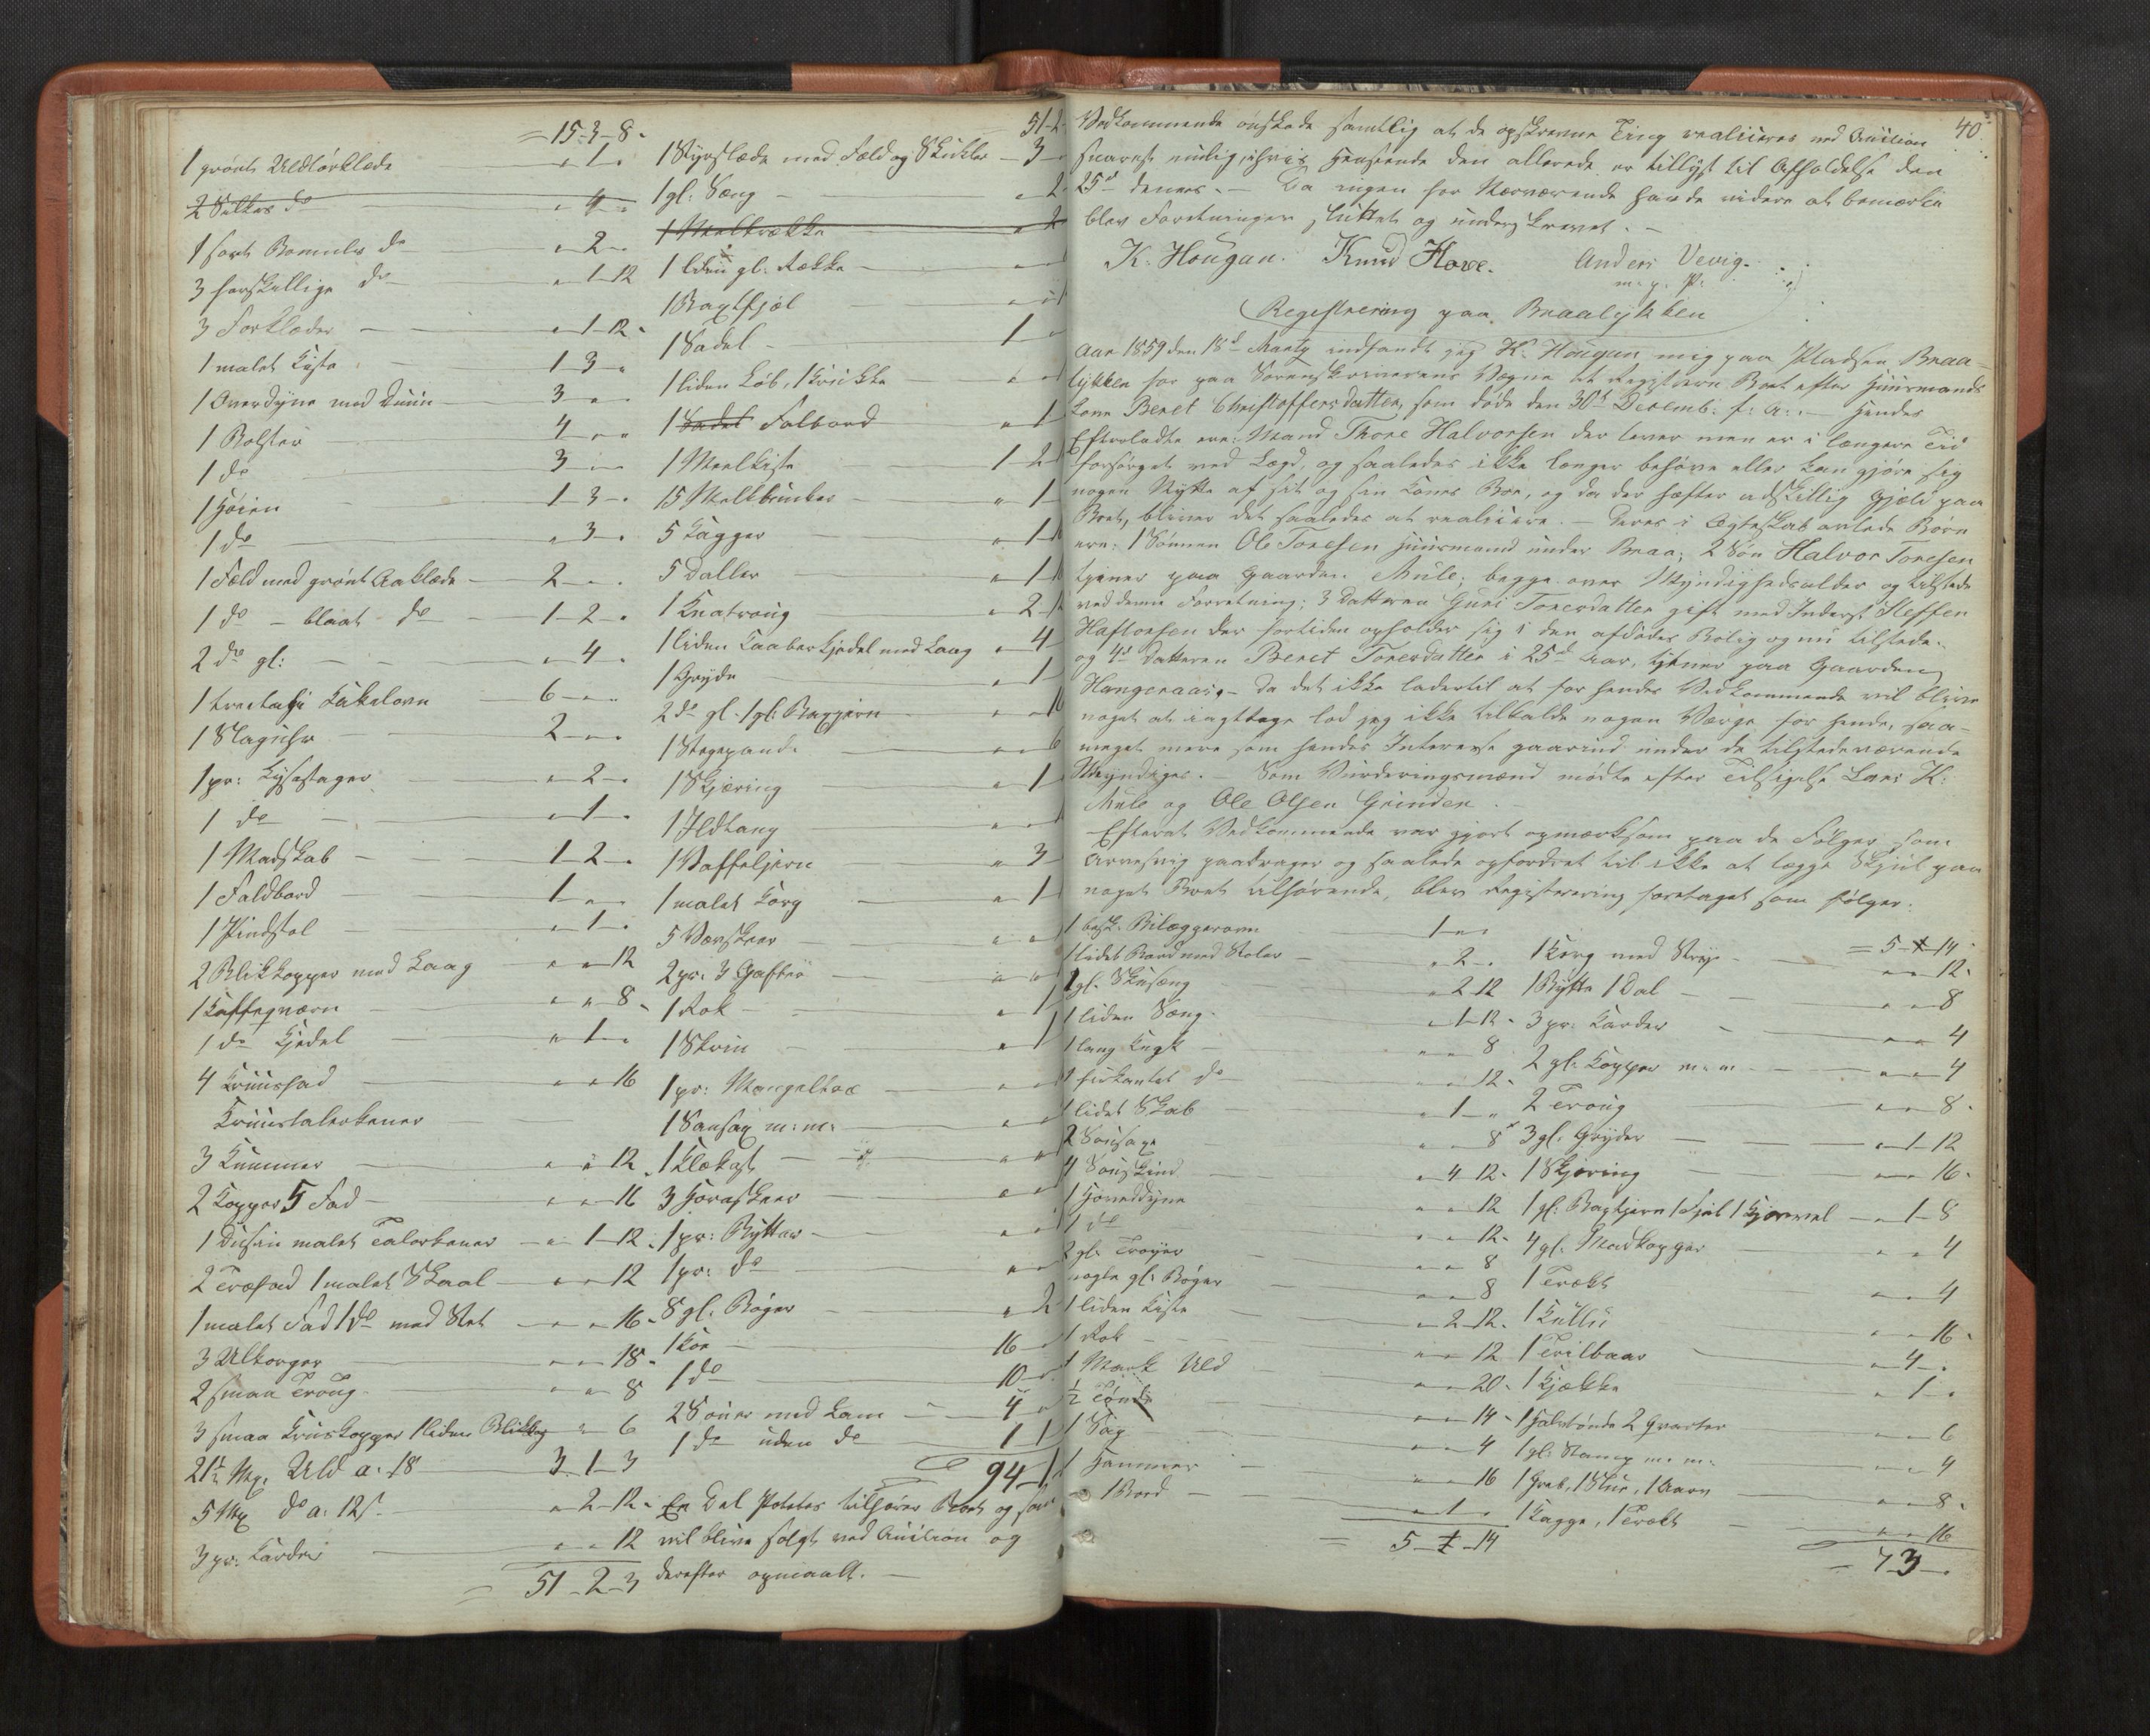 = 15-3-8.
1 grønt Uldtørklæde " 1 "
2 Silkes do " 4 "
1 sort Bomulds do " 2 "
3 forskjellige do " 1-12
3 Forklæder " 1-12.
1 malet Kiste 1-3 "
1 Overdyne med Duun 3 " "
1 Bolster 4 " "
1 do 3 " "
1 Høien 1-3 "
1 do " 3 "
1 Fæld med grønt Aaklæde 2 " "
1 do - blaat do 1-2 "
2 do gl: " 4 "
1 treetages Kakelovn 6 " "
1 Slaguhr 2 " "
1 pr: Lysestager " 2 "
1 do " 1 "
1 Madskab 1-2 "
1 Faldbord 1 " "
1 Pindstol " 1 "
2 Blikkopper med Laag " " 12
1 Kaffeqværn " " 8
1 do Kjedel " 1 "
4 Kruusfad " " 16
Kruustalerkener
3 Kummer " " 12
2 Kopper 5 Fad " " 16
1 Dusin malet Talerkener " 1-12
2 Træfad 1 malet Skaal " " 12
1 malet Fad 1 do med Stet " " 16
3 Ulkorger " " 18
2 smaa Troug " " 8
3 smaa Kruskopper 1 liden " " 6
21½ Mk. Uld a. 18 3-1-3
5 Mk do a: 12 s " 2-12
3 pr: Karder " " 12
= 51-2-3
51-2
1 Spidslæde med Fæld og Skikler 3
1 gl: Seng " 2
1 Melkrække " 2
1 liden gl: Række
1 Bagtfjæl
1 Sadel 1
1 liden Løb, 1 Krukke
1 Sadel Falbord " 1
1 Meelkiste 1-2
15 Melkbunker " 1
5 Kagger " 1
5 Daller " 1
1 Knatroug " 2
1 liden Kaaberkjedel med Laag " 4
1 Gryde " 1
2 do gl. 1 gl: Bagjern " " 16
1 Stegepande " " 6
1 Skjæring " 1
1 Ildtang
1 Vaffeljern " 3
1 malet Korg " 1
5 Vævskeer
2 pr: 3
1 Rok " 1
1 Skrin " 1
1 pr: Mangeltræ
1 Sausax m: m:
1 Klækost
3
1 pr: Bytter
1 pr: do
8 gl: Bøger " 2
1 Koe 16
1 do 10
2 Souer med Lam 4
1 do uden do 1 1
94-1
En Del Potetes tilhører Boet og som
vil blive solgt ved Auction og
derefter opmaalt.
40.
Vedkommende ønskede samtlig at de opskrevne Ting realiseres ved Auction
snarest mulig, i hvis Henseende den allerede er tillyst til Afholdelse den
25de dennes. - Da ingen for Nærværende havde videre at bemærke
blev Forretningen sluttet og underskrevet. -
K. Hougan. Knud Hove. Anders Vevig.
m. p. P.
Registrering paa Braalykken
Aar 1859 den 18de Marts indfandt jeg K. Hougan mig paa Pladsen Braa-
lykken for paa Sorenskriverens Vegne at registrere Boet efter Huusmands
kone Beret Christoffersdatter, som døde den 30te Decemb: f: A: - Hendes
Efterladte ere: Mand Thore Halvorsen der lever men er i længere Tid
forsørget ved Lægd, og saaledes ikke længer behøve eller kan gjøre sig
nogen Nytte af sit og sin Kones Boe, og da der hæfter adskillig Gjeld paa
Boet, bliver det saaledes at realisere. - Deres i Ægteskab avlede Børn
ere: 1 Sønnen Ole Toresen Huusmand under Braa; 2 Søn Halvor Toresen
tjener paa Gaarden Mule; begge over Myndighedsalder og tilstede
ved denne Forretning; 3 Datteren Guri Toresdatter gift med Inderst Steffen
Haftorsen der fortiden opholder sig i den afdødes Bolig og nu tilstede.
og 4de Datteren Beret Toresdatter i 25de Aar, tjener paa Gaarden
Hangeraas. - Da det ikke lader til at for hendes Vedkommende vil blive
noget at iagttage lod jeg ikke tilkalde nogen Værge for hende, saa-
meget mere som hendes Interesse gaar ind under de tilstedeværende
Myndiges. - Som Vurderingsmænd mødte efter Tilsigelse Lars K.
Mule og Ole Olsen Grinden.
Efterat Vedkommende var gjort opmærksom paa de Følger som
Arvesvig paadrager og saaledes opfordret til ikke at lægge Skjul paa
noget Boet tilhørende, blev Registrering foretaget som følger:
1 besk: Bilæggerovn 1 " "
1 lidet Bord med Stoler " 2 "
1 gl. Skusæng " 2 12
1 liden Seng " 1-12
1 lang Kugk " " 8
1 firkantet do " " 12
1 lidet Skab " 1 "
2 Sousaxe " " 8
4 Souskind " 4 12
1 Hoveddyne " " 12
1 do " " 12
2 gl. Trøyer " " 8
nogle gl: Bøger " " 8
1 liden Kiste " 2-12
1 Rok " " 12
1 Mark Uld " " 20
½ Tønde " " 14
1 Sag " " 4
1 Hammer " " 16
1 Bord " 1 "
= 5-1-14
= 5-1-14
1 Korg med Strye " " 12
1 Bytte 1 Dal " " 8
3 pr: Karder " " 4
2 gl: Kopper m: m " " 4
2 Troug " " 8
3 gl. Gryder " 1-12
1 Skjæring " " 16
1 gl: Bagtjern 1 Fjæl 1 Kjævel " 1-8
4 gl. Madkopper " " 4
1 Trækt " " 4
1 " " 16
1 Trilbaar " 4 "
1 Kjække " 1 "
1 Halvtønde 2 Qvarter " " 6
1 gl. Stamp m: m: " " 4
1 Greb, 1 " " 8
1 Kagge, 1 Trækt " " 16
= 7-3